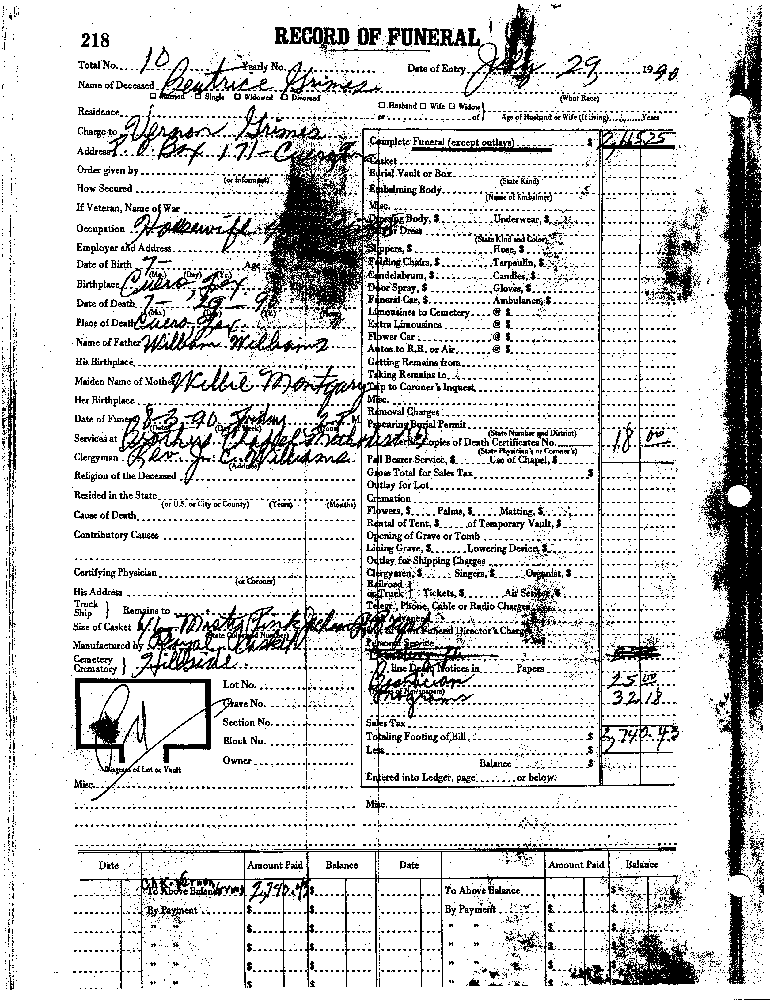 218
RECORD OF FUNERAL
Total No. 10 Yearly No. Date of Entry July 29, 1990
Name of Deceased Beatrice Grimes (What Race)
☐ Married ☐ Single ☐ Widowed ☐ Divorced
☐ Husband ☐ Wife ☐ Widow
Residence or of Age of Husband or Wife (if living) Years
Charge to Vernon Grimes
Address P.O. Box 171 - Cuero
Order given by (or Informant)
How Secured
If Veteran, Name of War
Occupation Housewife
Employer and Address
Date of Birth 7- Age
(Mo.) (Day) (Yr.)
Birthplace Cuero, Tex
Date of Death 7- 29 - 90
Place of Death Cuero Tex.
Name of Father William Williams
His Birthplace
Maiden Name of Mother Willie Montgomery
Her Birthplace
Date of Funeral 8-3-90 Friday 2 P.M.
Services at Brothers Chapel
Clergyman Rev. J. C. Williams
(Address)
Religion of the Deceased
Resided in the State
(or U.S. or City or County) (Years) (Months)
Cause of Death
Contributory Causes
Certifying Physician
(or Coroner)
His Address
Truck Ship } Remains to
Size of Casket Misty Pink
Manufactured by Casket
Cemetery Crematory } Hillside
Lot No.
Grave No.
Section No.
Block No.
Owner
Pd
Diagram of Lot or Vault
Misc.
Complete Funeral (except outlays) $
Casket
Burial Vault or Box
(State Kind)
Embalming Body $
(Name of Embalmer)
Misc.
Dressing Body, $ Underwear, $
Dress
(State Kind and Color)
Slippers, $ Hose, $
Folding Chairs, $ Tarpaulin, $
Candelabrum, $ Candles, $
Door Spray, $ Gloves, $
Funeral Car, $ Ambulance, $
Limousines to Cemetery @ $
Extra Limousines @ $
Flower Car @ $
Autos to R.R. or Air @ $
Getting Remains from
Taking Remains to
Trip to Coroner's Inquest
Misc.
Removal Charges
Preparing Burial Permit
(State Number and District)
Copies of Death Certificates No. 18 00
(State Physician's or Coroner's)
Pall Bearer Service, $ Use of Chapel, $
Gross Total for Sales Tax $
Outlay for Lot
Cremation
Flowers, $ Palms, $ Matting, $
Rental of Tent, $ of Temporary Vault, $
Opening of Grave or Tomb
Lining Grave, $ Lowering Device, $
Outlay for Shipping Charges
Clergymen, $ Singers, $ Organist, $
Railroad or Truck } Tickets, $ Air Service, $
Telegr., Phone, Cable or Radio Charges
Funeral Director's Charge
Personal Service
line Death Notices in Papers
Beautician 25 00
(Names of Newspapers)
Programs 32.18
Sales Tax
Totaling Footing of Bill $ 2,740.43
Less $
Balance $
Entered into Ledger, page or below.
Misc.
Date Amount Paid Balance Date Amount Paid Balance
To Above Balance 2,740.43 $ To Above Balance $
By Payment $ $ By Payment $ $
" " $ $ " " $ $
" " $ $ " " $ $
" " $ $ " " $ $